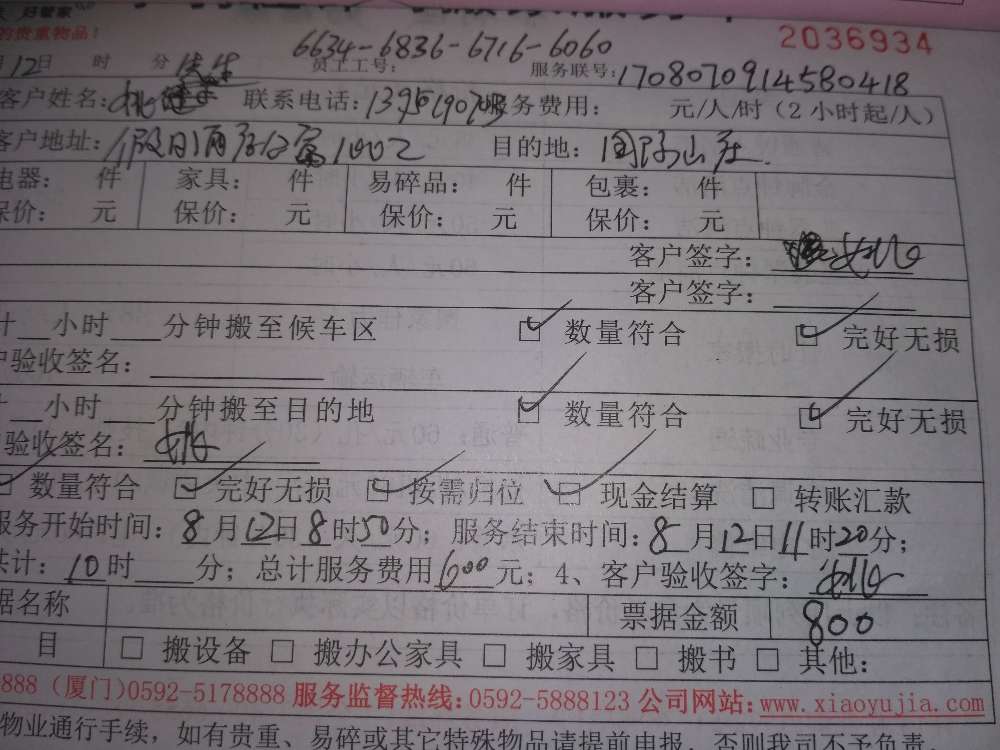 好管家
的贵重物品！
2036934
6634-6836-6716-6060
月12日 时 分 员工工号： 服务联号：1708070914580418
客户姓名： 联系电话： 服务费用： 元/人/时（2小时起/人）
客户地址：假日酒店公寓1002 目的地：国际山庄
电器： 件 家具： 件 易碎品： 件 包裹： 件
保价： 元 保价： 元 保价： 元 保价： 元
客户签字：
客户签字：
计__小时____分钟搬至候车区 ☑ 数量符合 ☑ 完好无损
户验收签名：
计__小时____分钟搬至目的地 ☑ 数量符合 ☑ 完好无损
验收签名：
☑ 数量符合 ☑ 完好无损 ☑ 按需归位 ☑ 现金结算 □ 转账汇款
服务开始时间：8月12日8时50分；服务结束时间：8月12日11时20分；
共计：10时____分；总计服务费用600元；4、客户验收签字：
据名称 票据金额 800
目 □ 搬设备 □ 搬办公家具 □ 搬家具 □ 搬书 □ 其他：
888（厦门)0592-5178888 服务监督热线：0592-5888123 公司网站：www.xiaoyujia.com
物业通行手续，如有贵重、易碎或其它特殊物品请提前申报，否则我司不予负责